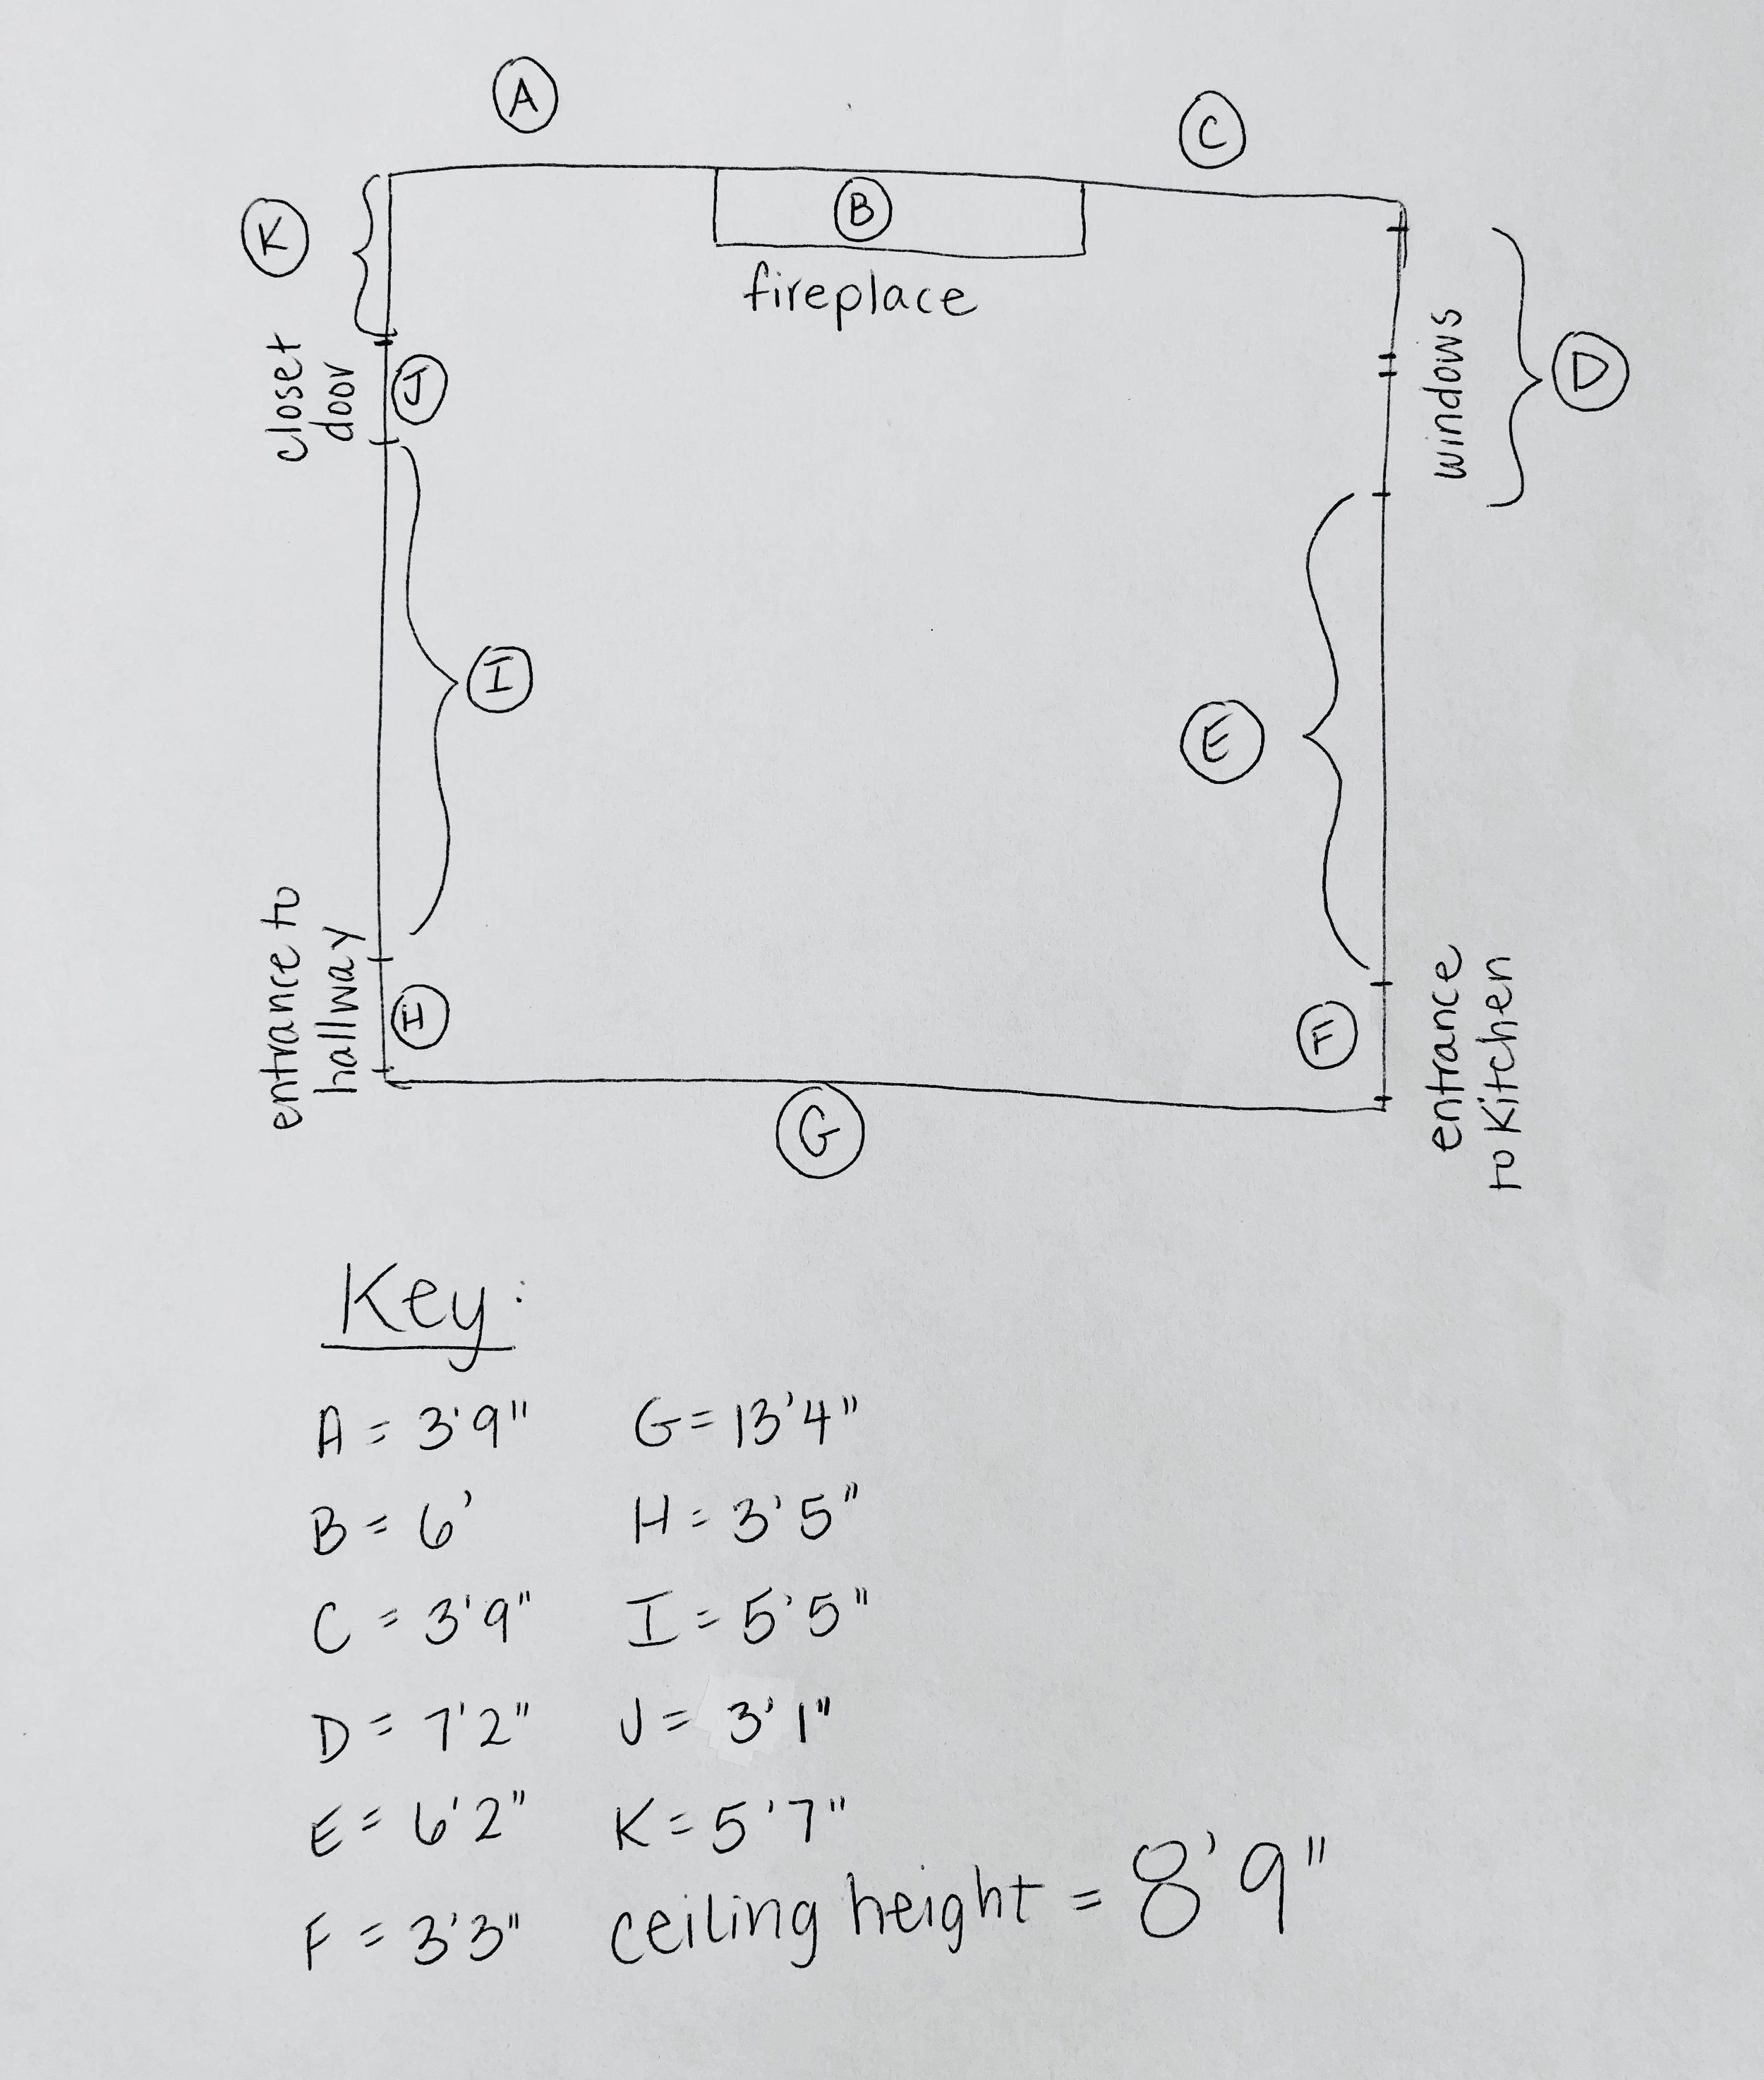 A
C
K
B
fireplace
closet
door
J
windows
D
I
E
entrance to
hallway
I
F
entrance
to Kitchen
G
Key:
A = 3'9"
G = 13'4"
B = 6'
H = 3'5"
C = 3'9"
I = 5'5"
D = 7'2"
J = 3'1"
E = 6'2"
K = 5'7"
F = 3'3"
ceiling height = 8'9"